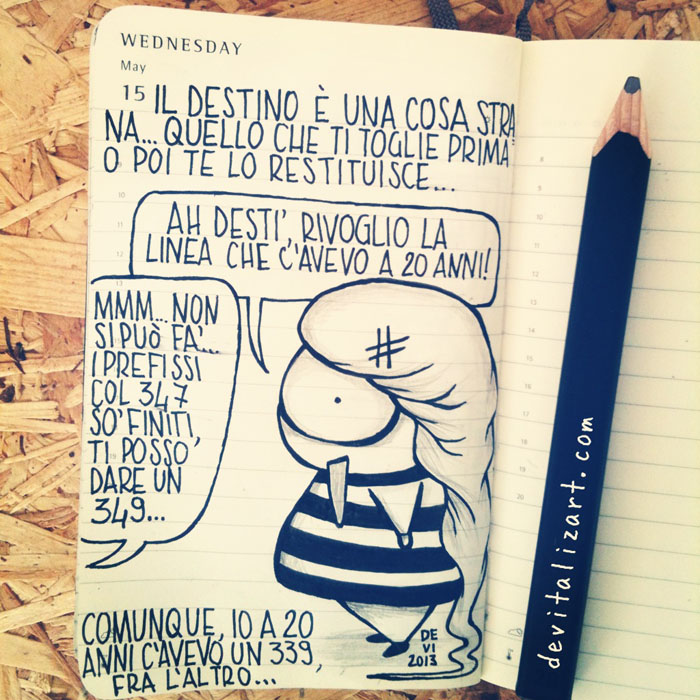 WEDNESDAY
May
15 IL DESTINO È UNA COSA STRA
NA... QUELLO CHE TI TOGLIE PRIMA
O POI TE LO RESTITUISCE...
AH DESTI', RIVOGLIO LA
LINEA CHE C'AVEVO A 20 ANNI!
MMM... NON
SI PUÒ FA'....
I PREFISSI
COL 347
SO' FINITI,
TI POSSO
DARE UN
349...
#
COMUNQUE, IO A 20
ANNI C'AVEVO UN 339,
FRA L'ALTRO...
DE
VI
2013
10
11
12
13
19
8
9
10
11
12
13
14
15
16
17
18
19
20
devitalizart.com